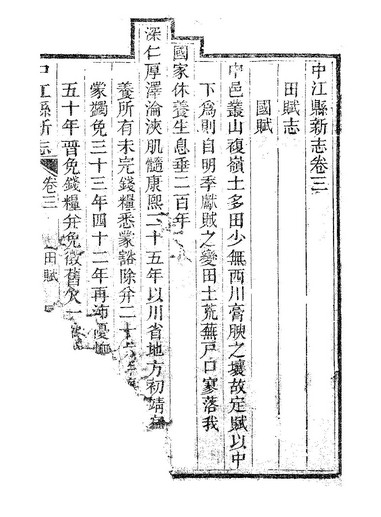 中江縣新志卷三
田賦志
國賦
中邑叢山複嶺土多田少無西川膏腴之壤故定賦以中
下爲則自明季獻賊之變田土荒蕪戸口寥落我
國家休養生息垂二百年
深仁厚澤淪浹肌髓康熙二十五年以川省地方初靖
養所有未完錢糧悉蒙豁除并二十六年
蒙蠲免三十三年四十二年再沛優
五十年晋免錢糧并免徵舊欠一
中江縣新志
卷三
田賦